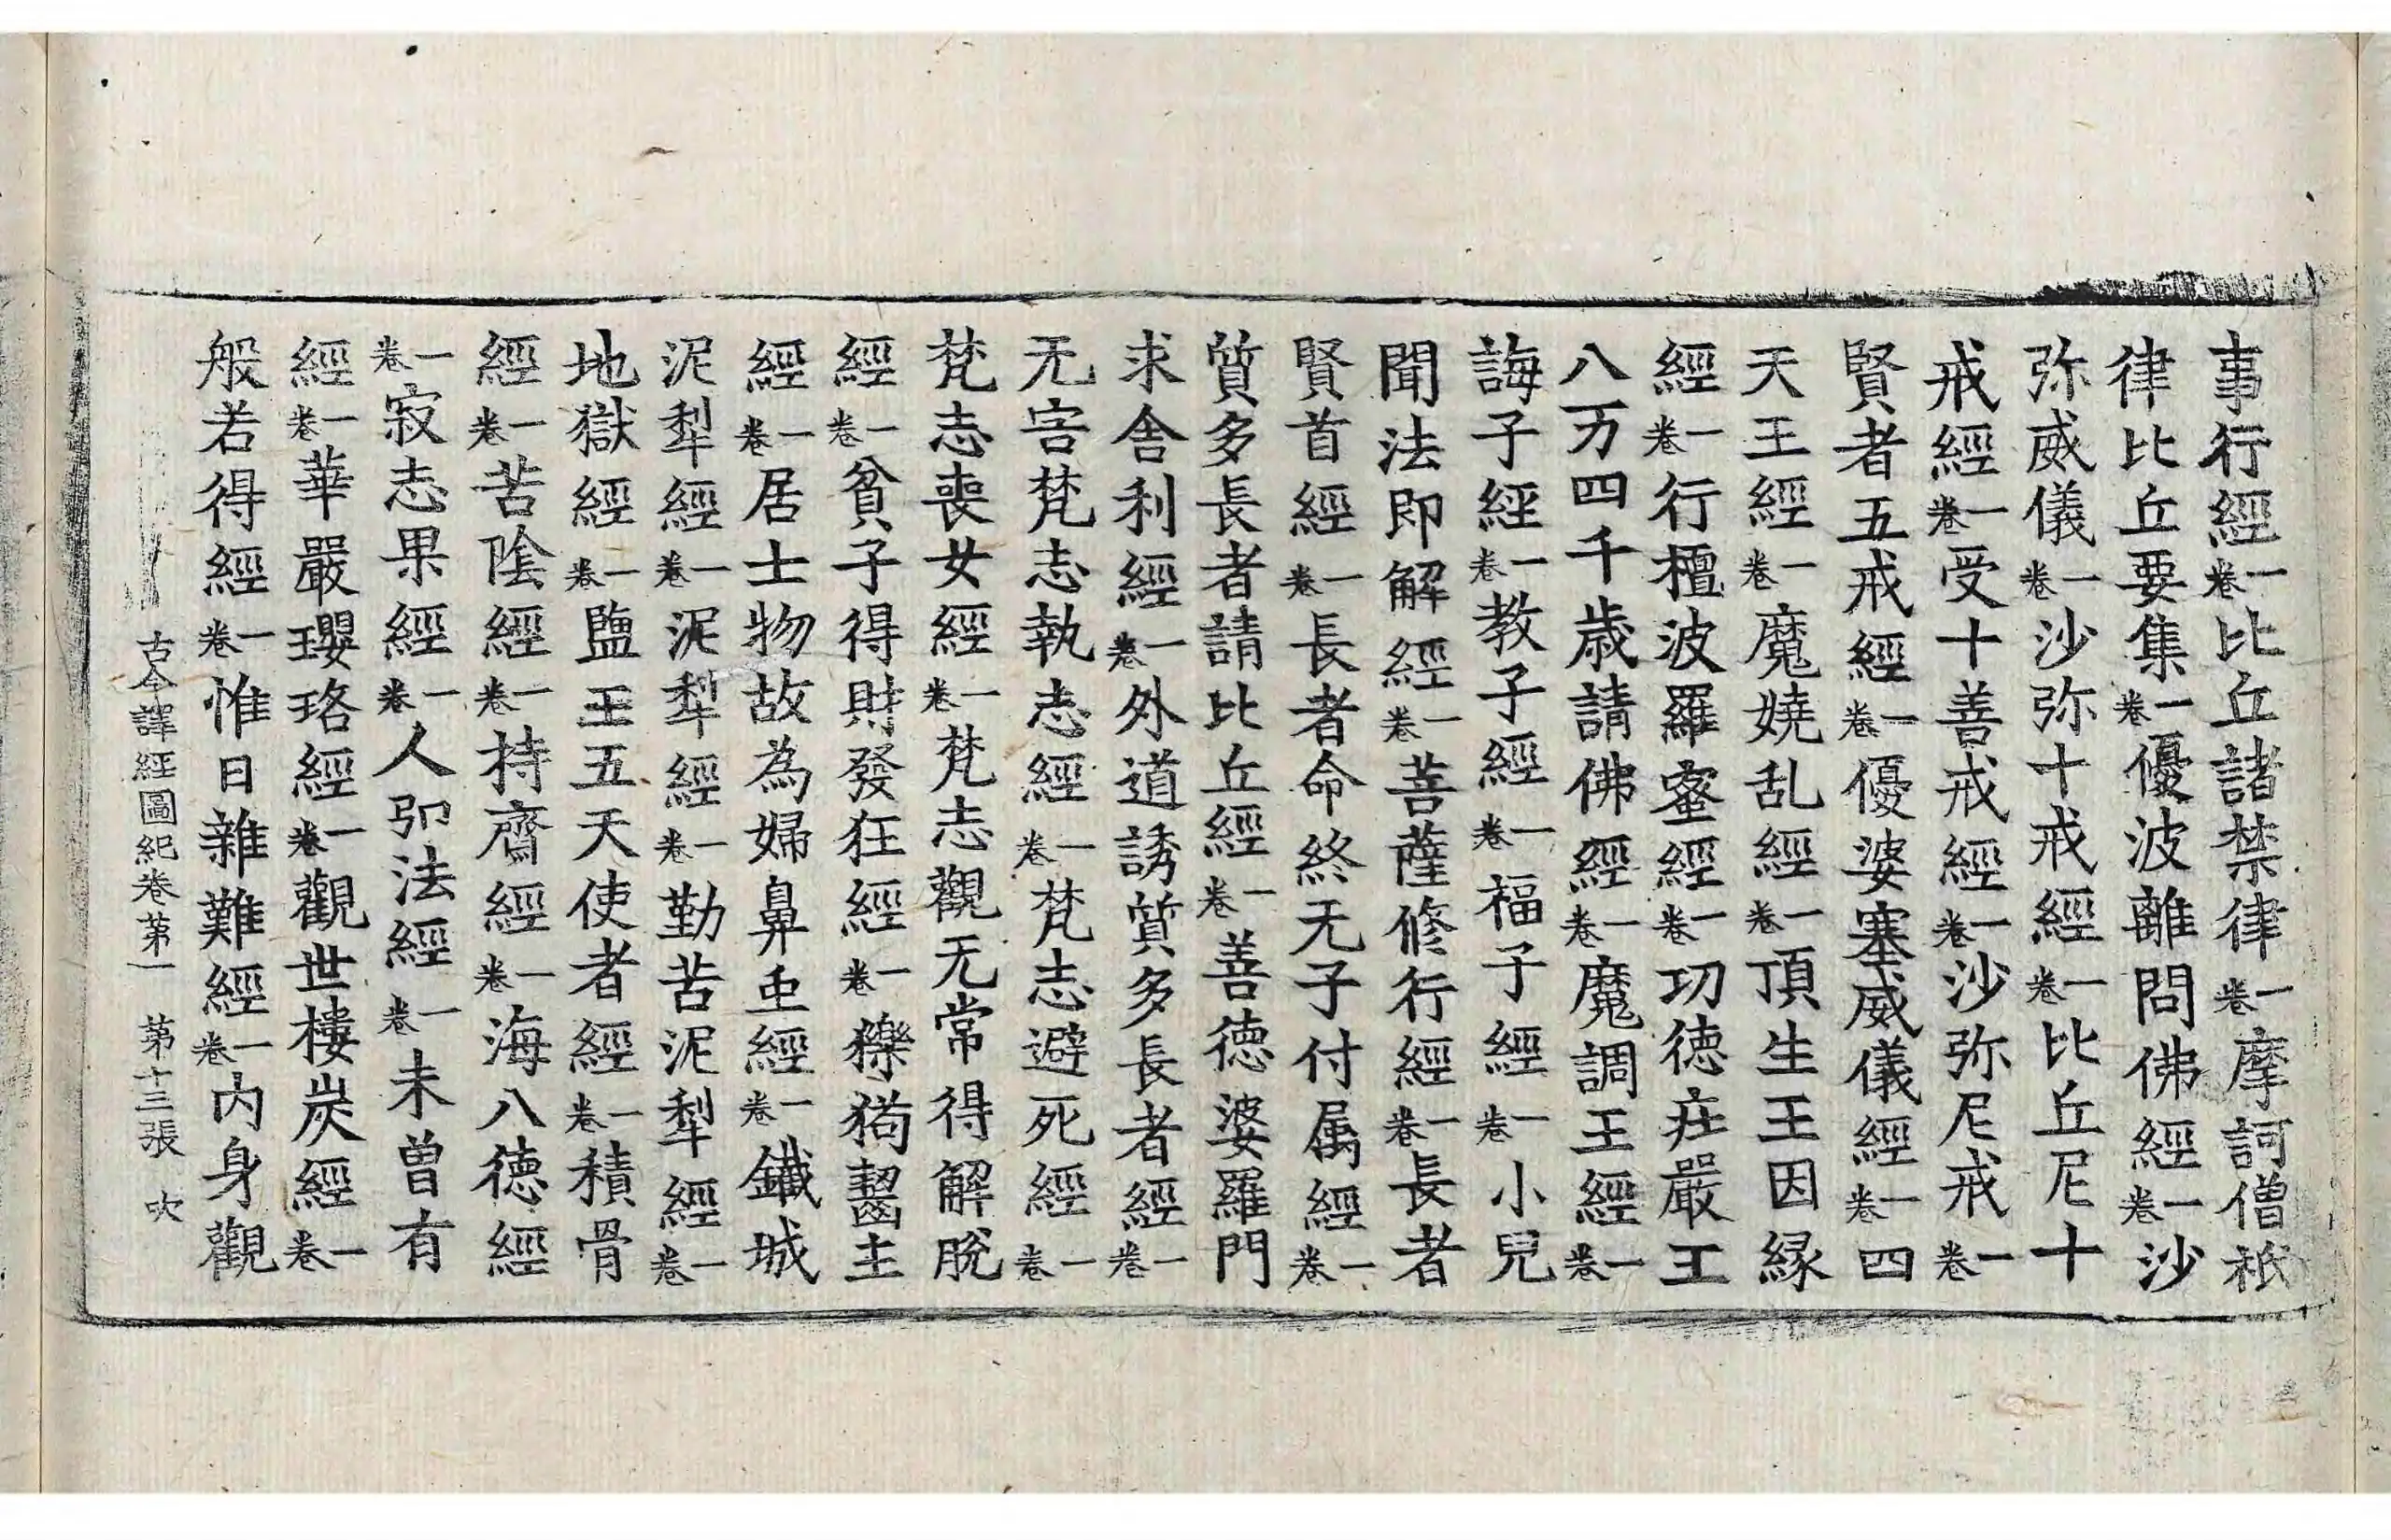 事行經一卷比丘諸禁律一卷摩訶僧祇
律比丘要集一卷優波離問佛經一卷沙
弥威儀一卷沙弥十戒經一卷比丘尼十
戒經一卷受十善戒經一卷沙弥尼戒一卷
賢者五戒經一卷優婆塞威儀經一卷四
天王經一卷魔嬈乱經一卷頂生王因縁
經一卷行檀波羅蜜經一卷功徳庄嚴王
八万四千歳請佛經一卷魔調王經一卷
誨子經一卷教子經一卷福子經一卷小兒
聞法即解經一卷菩薩修行經一卷長者
賢首經一卷長者命終无子付属經一卷
質多長者請比丘經一卷善徳婆羅門
求舎利經一卷外道誘質多長者經一卷
无害梵志執志經一卷梵志避死經一卷
梵志喪女經一卷梵志觀无常得解脫
經一卷貧子得財發狂經一卷㹎狗齧主
經一卷居士物故為婦鼻虫經一卷鐵城
泥犁經一卷泥犁經一卷勤苦泥犁經一卷
地獄經一卷塩王五天使者經一卷積骨
經一卷苦陰經一卷持齋經一卷海八徳經
一卷寂志果經一卷人仰法經一卷未曾有
經一卷華嚴瓔珞經一卷觀世樓炭經一卷
般若得經一卷惟日雜難經一卷内身觀
古今譯經圖紀卷第一 第十三張 吹